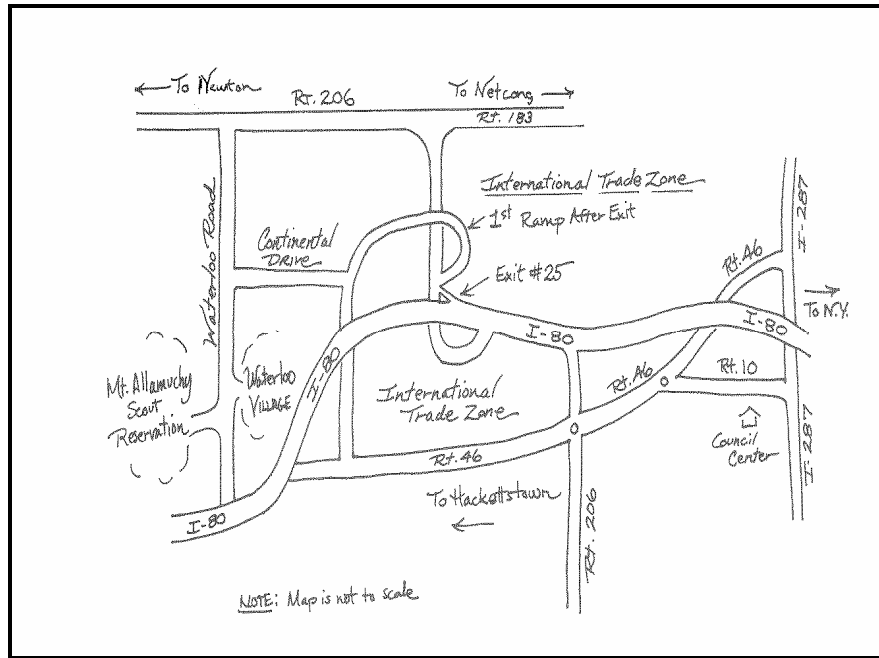 ← To Newton
To Netcong →
Rt. 206
Rt. 183
International Trade Zone
1st Ramp After Exit
Waterloo Road
I-287
Continental
Drive
Rt. 46
Exit #25
To N.Y.
I-80
I-80
I-80
Rt. 10
Rt. 46
Mt. Allamuchy
Scout
Reservation
Waterloo
Village
International
Trade Zone
Council
Center
I-287
Rt. 46
To Hackettstown
←
I-80
Rt. 206
NOTE: Map is not to scale